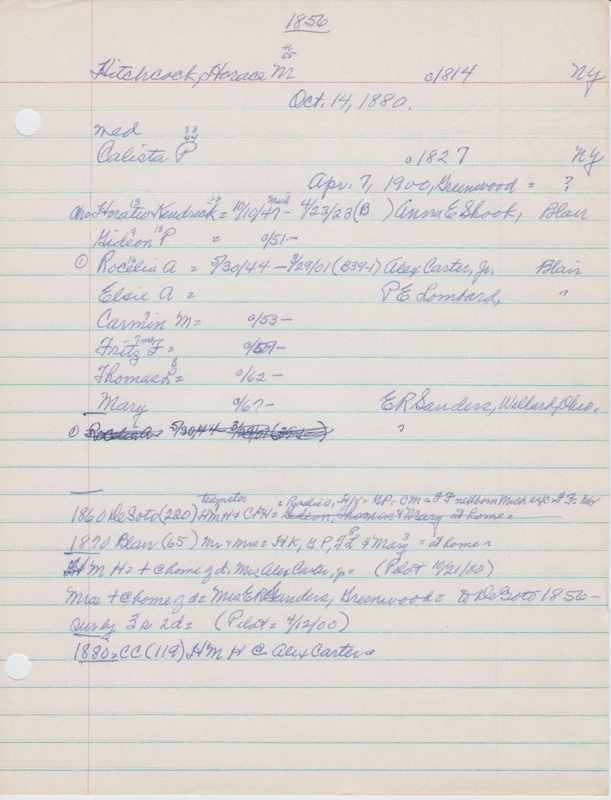 1856
46
55
Hitchcock, Horace M c1814 NY
Oct. 14, 1880.
med 33
44
Calista P c1827 NY
Apr. 7, 1900, Greenwood = ?
ch= Horatio Kendrick = 10/10/47 - Mich 4/23/23 (B ) Anna E Shook, Blair
Gideon P = c/51-
① Rocelia A = 5/30/44 - 3/29/01 (B39-1) Alex Carter, Jr. Blair
Elsie A = P E Lombard, "
Carmin M = c/53-
Fritz F = c/59-
Thomas L = c/62-
Mary c/67- E R Sanders, Willard, Ohio.
① Rocelia A = 5/30/44 "
teamster
1860 DeSoto (220) HMH + CPH = Gideon, Thomas & Mary at home =
1870 Blair (65) Mr + Mrs = HK, GP, & Mary = at home =
HMH = + @ home of d, Mrs Alex Carter, Jr = (Pilot 10/21/80)
Mrs = + @ home of d = Mrs E R Sanders, Greenwood = to DeSoto 1856-
Surv by 3 s 2 d = (Pilot = 4/12/00)
1880 = CC (119) HMH @ Alex Carter =